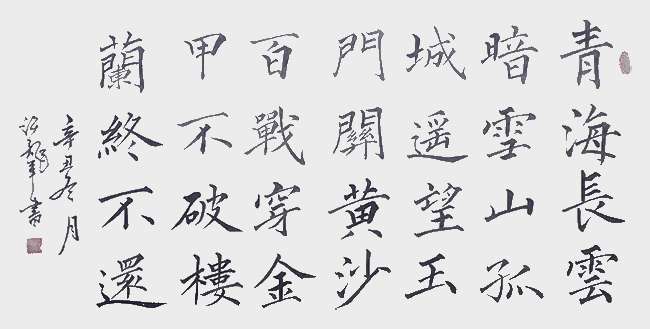 青海長雲
暗雪山孤
城遥望玉
門關黄沙
百戰穿金
甲不破樓
蘭終不還
辛丑冬月
書